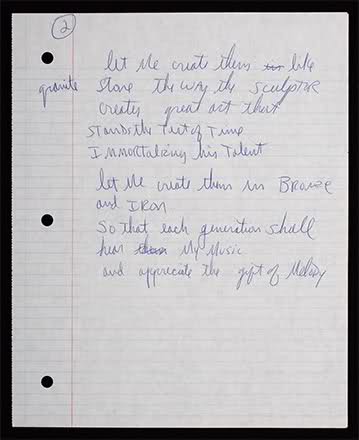 2
let Me create them in like
granite Stone the way the sculptor
creates great art that
stands the Test of Time
Immortalizing his Talent
let Me create them in Bronze
and Iron
So that each generation shall
hear them My Music
and appreciate the gift of Melody